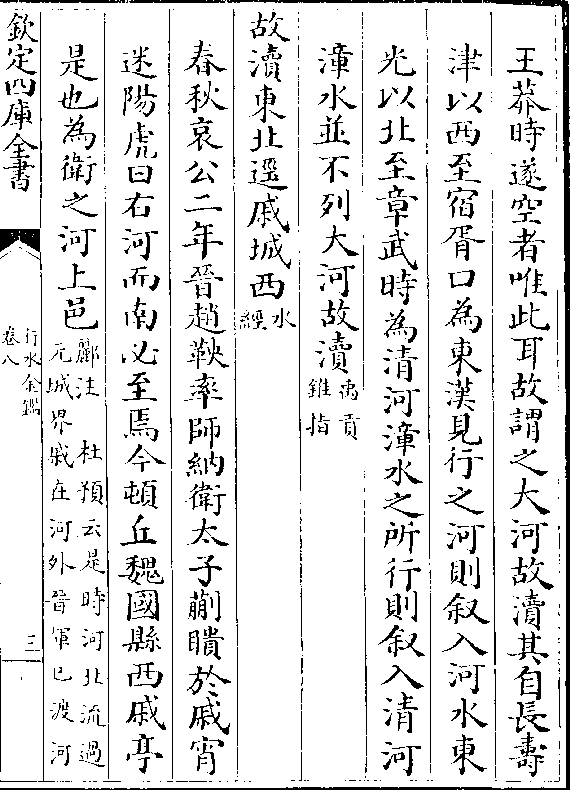 王莽時遂空者唯此耳故謂之大河故瀆其自長壽
津以西至宿胥口為東漢見行之河則叙入河水東
光以北至章武時為清河漳水之所行則叙入清河
漳水並不列大河故瀆禹貢
錐指
故瀆東北逕戚城西水
經
春秋哀公二年晉趙鞅率師納衛太子蒯聵於戚宵
迷陽虎曰右河而南必至焉今頓丘衛國縣西戚亭
是也為衛之河上邑酈注 杜預云是時河北流過
元城界戚在河外晉軍已渡河
欽定四庫全書
行水金鑑
卷八
三